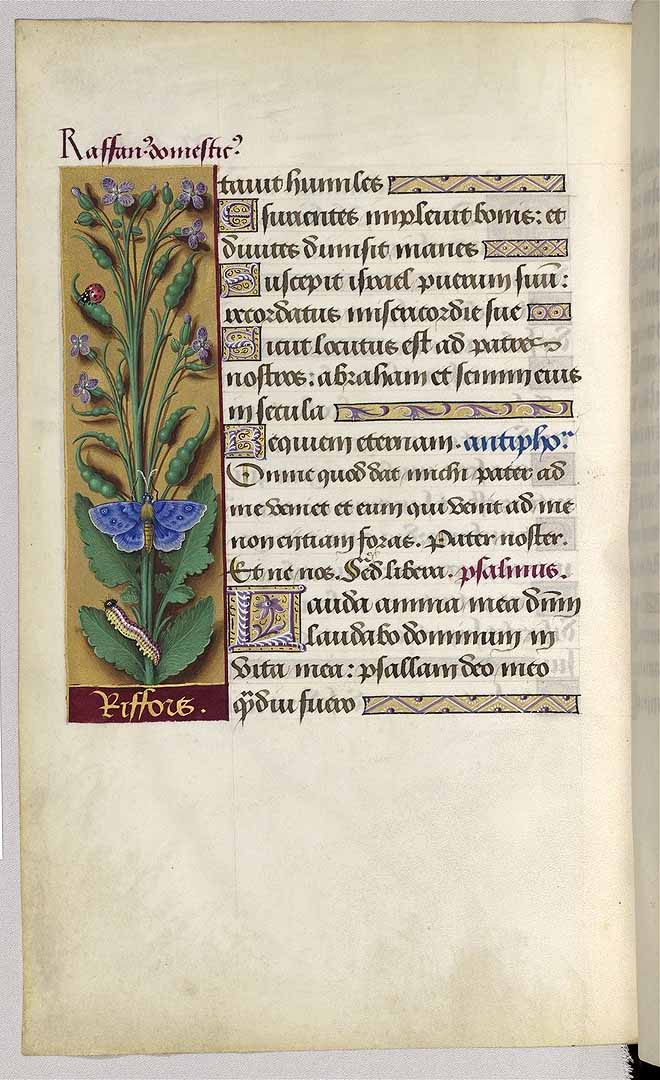 Raffan9 domestic9
tavit humiles
Esurientes implevit bonis: et
divites dimisit inanes
Suscepit israel puerum suũ:
recordatus misericordie sue
Sicut locutus est ad patres
nostros: abraham et semini eius
in secula
Requiem eternam. antiphor
Omne quod dat michi pater ad
me veniet et eum qui venit ad me
non eiitiam foras. Pater noster.
Et ne nos. Sed libera. psalmus.
Lauda anima mea dñm
laudabo dominum in
vita mea: psallam deo meo
q̃diu fuero
Riffors.